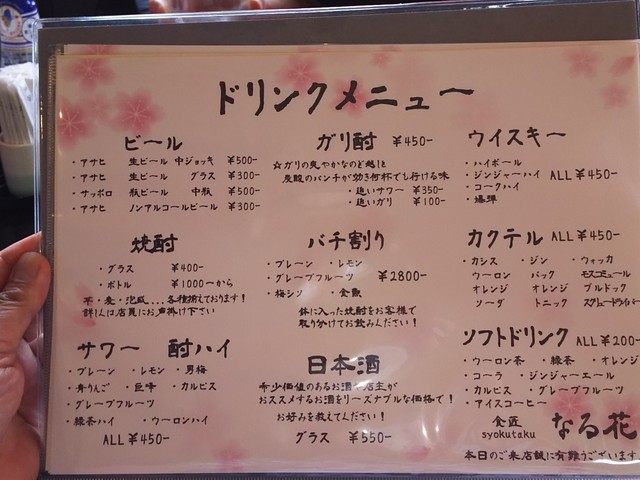 ドリンクメニュー
ビール
・アサヒ 生ビール 中ジョッキ ¥500-
・アサヒ 生ビール グラス ¥300-
・サッポロ 瓶ビール 中瓶 ¥500-
・アサヒ ノンアルコールビール ¥300-
ガリ酎 ¥450-
☆ガリの爽やかなのど越しと
炭酸のパンチが効き何杯でも行ける味
・追いサワー ¥350-
・追いガリ ¥100-
ウイスキー
・ハイボール
・ジンジャーハイ
・コークハイ
・爆弾
ALL ¥450-
焼酎
・グラス ¥400-
・ボトル ¥1000-から
芋・麦・泡盛...各種揃えております!
詳しくは店員にお声掛け下さい
バチ割り
・プレーン ・レモン
・グレープフルーツ
・梅シソ ・金魚
¥2800-
鉢に入った焼酎をお客様で
取り分けてお飲みください!
カクテル ALL ¥450-
カシス ・ジン ・ウォッカ
ウーロン バック モスコミュール
オレンジ オレンジ ブルドック
ソーダ トニック スクリュードライバー
サワー 酎ハイ
・プレーン ・レモン ・男梅
・青りんご ・巨峰 ・カルピス
・グレープフルーツ
・緑茶ハイ ・ウーロンハイ
ALL ¥450-
日本酒
希少価値のあるお酒や店主が
おススメするお酒をリーズナブルな価格で!
お好みを教えてください!
グラス ¥550-
ソフトドリンク ALL ¥200-
・ウーロン茶 ・緑茶 ・オレンジ
・コーラ ・ジンジャーエール
・カルピス ・グレープフルーツ
・アイスコーヒー
食匠 なる花
syokutaku
本日のご来店誠に有難うございます